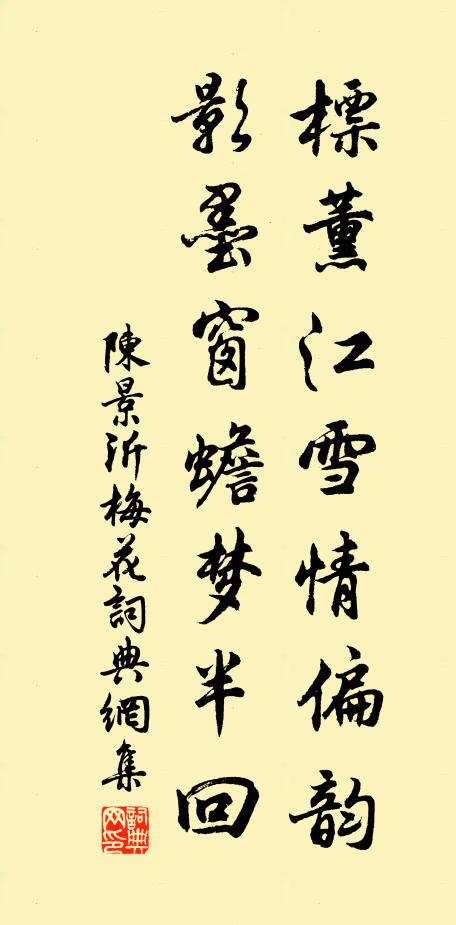 標薰江雪情偏韵
影墨窗蟾梦半回
陳景沂梅花詞典網集
詞典网印